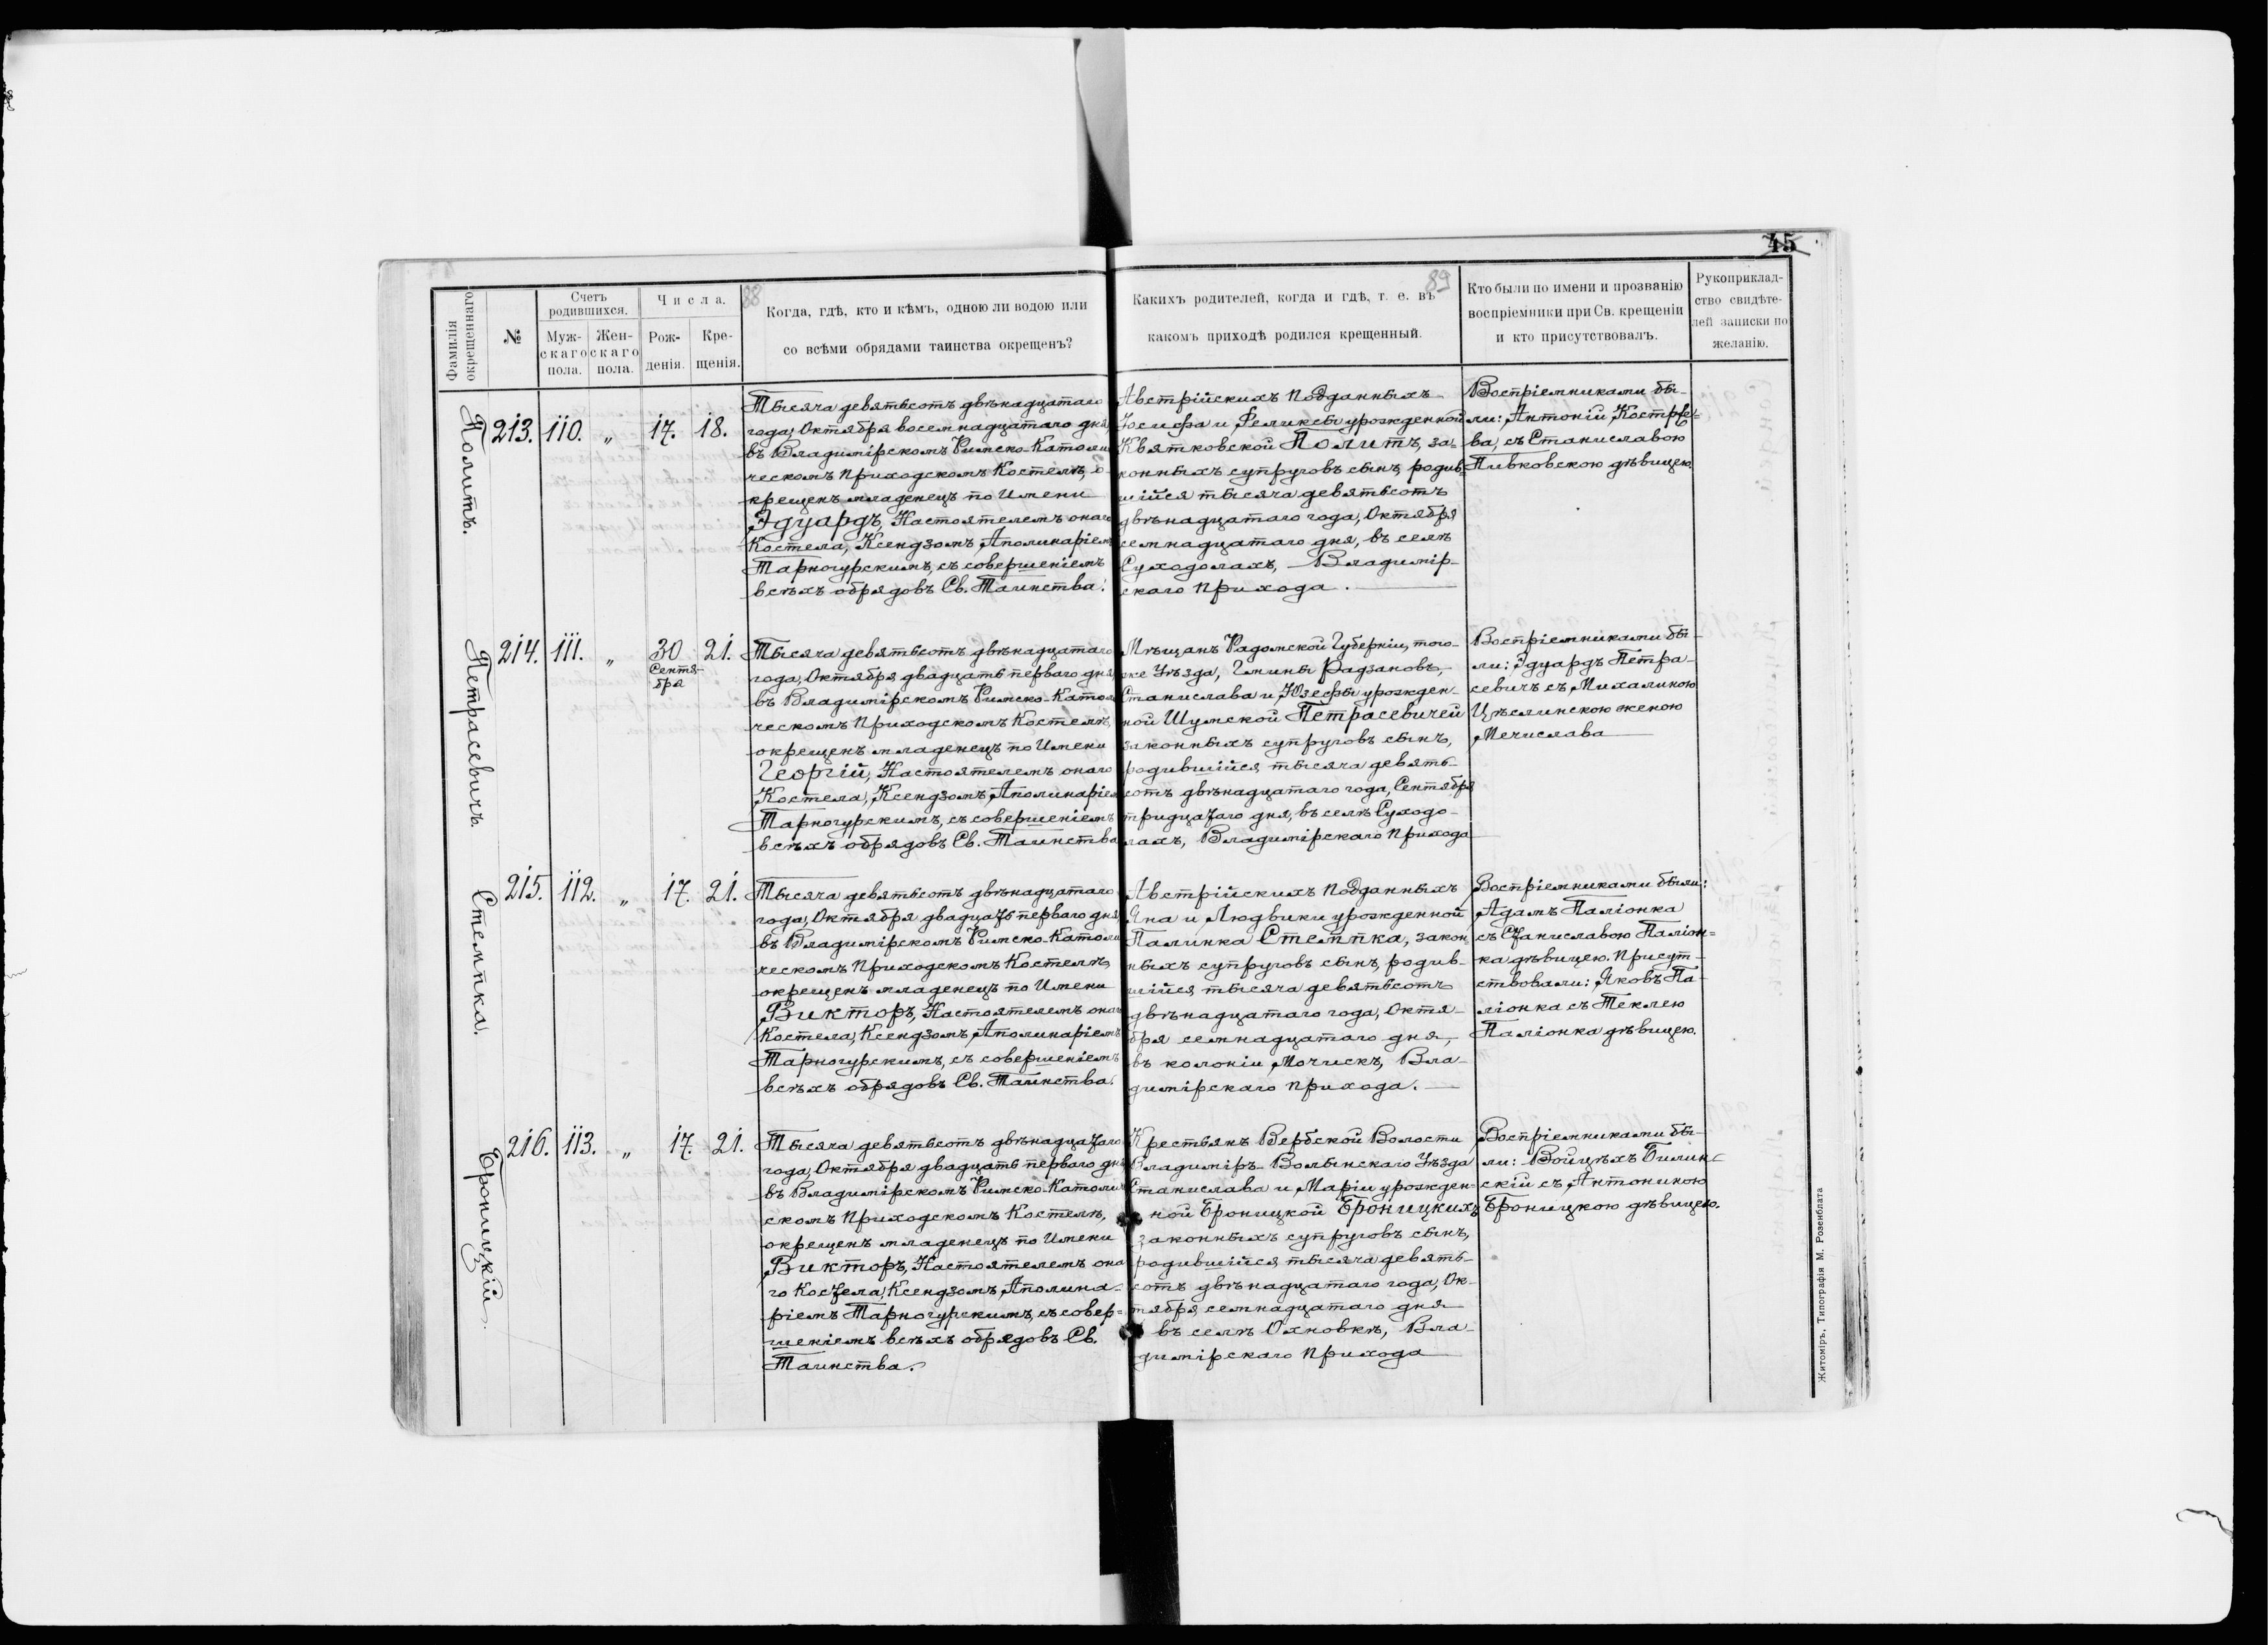 45
88
89
Фамилія окрещеннаго.
№
Счетъ родившихся.
Муж-
скаго
пола.
Жен-
скаго
пола.
Числа.
Рож-
денія.
Кре-
щенія.
Когда, гдѣ, кто и кѣмъ, одною ли водою или
со всѣми обрядами таинства окрещенъ?
Какихъ родителей, когда и гдѣ, т. е. въ
какомъ приходѣ родился крещенный.
Кто были по имени и прозванію
воспріемники при Св. крещеніи
и кто присутствовалъ.
Рукоприклад-
ство свидѣте-
лей записки по
желанію.
Политъ.
213. 110. „ 17. 18.
Тысяча девятьсотъ двѣнадцатаго
года, Октября восемнадцатаго дня,
въ Владимірскомъ Римско-Католи
ческомъ Приходскомъ Костелѣ, о-
крещенъ младенецъ по Имени
Эдуардъ, Настоятелемъ онаго
Костела, Ксендзомъ Аполинаріемъ
Тарногурскимъ, съ совершеніемъ
всѣхъ обрядовъ Св. Таинства.
Австрійскихъ Подданныхъ
Іосифа и Феликсы урожденной
Квятковской Политъ, за-
конныхъ супруговъ сынъ, родив-
шійся тысяча девятьсотъ
двѣнадцатаго года, Октября
семнадцатаго дня, въ селѣ
Суходолахъ, Владимір-
скаго Прихода.
Воспріемниками бы-
ли: Антоній Костре-
ва, съ Станиславою
Пивковскою дѣвицею.
Петрасевичъ.
214. 111. „ 30 Сентя-
бря 21.
Тысяча девятьсотъ двѣнадцатаго
года, Октября двадцать перваго дня
въ Владимірскомъ Римско-Катол
ческомъ Приходскомъ Костелѣ,
окрещенъ младенецъ по Имени
Георгій, Настоятелемъ онаго
Костела, Ксендзомъ Аполинаріем
Тарногурскимъ, съ совершеніемъ
всѣхъ обрядовъ Св. Таинства
Мѣщанъ Радомской Губерніи, того-
же Уѣзда, Гмины Радзановъ,
Станислава и Юзефы урожден-
ной Шумской Петрасевичей
законныхъ супруговъ сынъ,
родившійся тысяча девять-
сотъ двѣнадцатаго года, Сентября
тридцатаго дня, въ селѣ Суходо-
лахъ, Владимірскаго Прихода
Воспріемниками бы-
ли: Эдуардъ Петра-
севичъ съ Михалиною
Цѣслинскою женою
Мечислава
Стемпка.
215. 112. „ 17. 21.
Тысяча девятьсотъ двѣнадцатаго
года, Октября двадцать перваго дня
въ Владимірскомъ Римско-Католи
ческомъ Приходскомъ Костелѣ
окрещенъ младенецъ по Имени
Викторъ, Настоятелемъ онаго
Костела, Ксендзомъ Аполинаріемъ
Тарногурскимъ, съ совершеніемъ
всѣхъ обрядовъ Св. Таинства.
Австрійскихъ Подданныхъ
Яна и Людвики урожденной
Палинка Стемпка, закон-
ныхъ супруговъ сынъ, родив-
шійся тысяча девятьсотъ
двѣнадцатаго года, Октя-
бря семнадцатаго дня,
въ колоніи Мочискъ, Вла-
димірскаго Прихода.
Воспріемниками были:
Адамъ Паліонка
съ Станиславою Паліон-
ка дѣвицею. Присут-
ствовали: Яковъ Па-
ліонка съ Теклею
Паліонка дѣвицею.
Броницкій.
216. 113. „ 17. 21.
Тысяча девятьсотъ двѣнадцатаго
года, Октября двадцать перваго дня
въ Владимірскомъ Римско-Католич
скомъ Приходскомъ Костелѣ,
окрещенъ младенецъ по Имени
Викторъ, Настоятелемъ она
го Костела, Ксендзомъ Аполина-
ріемъ Тарногурскимъ, съ совер-
шеніемъ всѣхъ обрядовъ Св.
Таинства.
Крестьянъ Вербской Волости
Владиміръ-Волынскаго Уѣзда
Станислава и Маріи урожден-
ной Броницкой Броницкихъ
законныхъ супруговъ сынъ,
родившійся тысяча девять-
сотъ двѣнадцатаго года, Ок-
тября семнадцатаго дня
въ селѣ Охновкѣ, Вла-
димірскаго Прихода
Воспріемниками бы-
ли: Войцѣхъ Билин-
скій съ Антониною
Броницкою дѣвицею.
Житоміръ, Типографія М. Розенблата